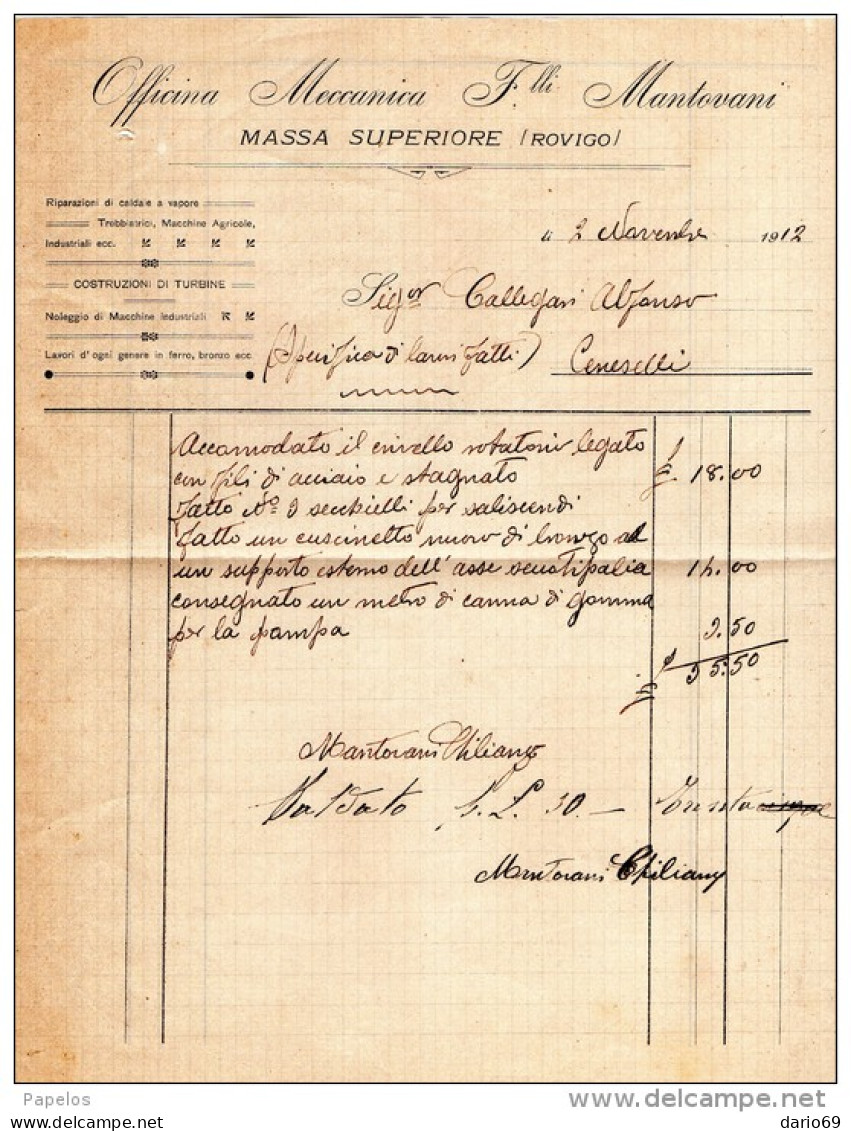 Officina Meccanica F.lli Mantovani
MASSA SUPERIORE (ROVIGO)
Riparazioni di caldaie a vapore
Trebbiatrici, Macchine Agricole,
Industriali ecc.
COSTRUZIONI DI TURBINE
Noleggio di Macchine industriali
Lavori d'ogni genere in ferro, bronzo ecc.
li 2 Novembre 1912
Sigor Callegari Alfonso
(Specifica di lavori fatti) Ceneselli
Accomodato il crivello rotatorio legato
con fili di acciaio e stagnato £ 18.00
fatto No 9 secchielli per saliscendi
fatto un cuscinetto nuovo di bronzo ad
un supporto esterno dell'asse scuotipalia 14.00
consegnato un metro di canna di gomma
per la pompa 3.50
£ 35.50
Mantovani
Saldato L. 30.— Trenta
Mantovani
Papelos
delcampe.net
dario69